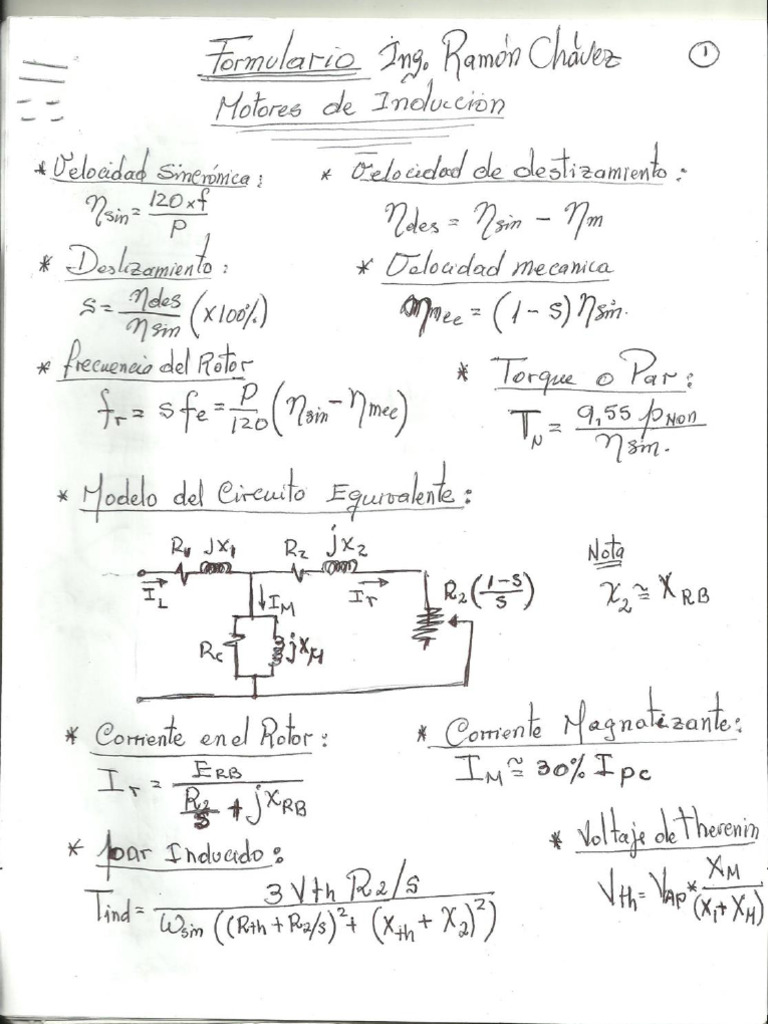 Formulario Ing. Ramón Chávez
1
Motores de Inducción
* Velocidad sincrónica:
ηsin = 120xf / P
* Velocidad de destizamiento:
ηdes = ηsin - ηm
* Deslizamiento:
s = ηdes / ηsin (x100%)
* Velocidad mecanica
ηmec = (1-s) ηsin.
* frecuencia del Rotor
fr = s fe = P/120 (ηsin - ηmec)
* Torque o Par:
TN = 9,55 PNon / ηsin.
* Modelo del Circuito Equivalente:
R1 jX1 R2 jX2
IL IM Ir R2(1-s/s)
Rc jXM
Nota
X2 ≅ XRB
* Corriente en el Rotor:
Ir = ERB / R2/s + jXRB
* Corriente Magnatizante:
IM ≅ 30% Ipc
* par Inducido:
Tind = 3 Vth R2/s / Wsin ((Rth + R2/s)² + (Xth + X2)²)
* Voltaje de Thevenin
Vth = VAP * XM / (X1 + XM)